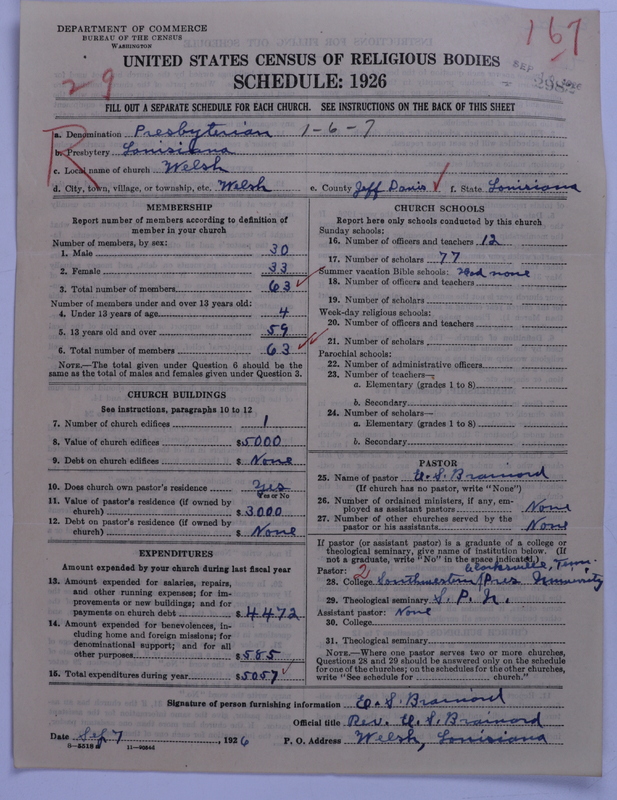 DEPARTMENT OF COMMERCE
BUREAU OF THE CENSUS
WASHINGTON
167
29
UNITED STATES CENSUS OF RELIGIOUS BODIES
SCHEDULE: 1926
FILL OUT A SEPARATE SCHEDULE FOR EACH CHURCH. SEE INSTRUCTIONS ON THE BACK OF THIS SHEET
R
a. Denomination Presbyterian 1-6-7
b. Presbytery Louisiana
c. Local name of church Welsh
d. City, town, village, or township, etc. Welsh e. County Jeff Davis f. State Louisiana
MEMBERSHIP
Report number of members according to definition of member in your church
Number of members, by sex:
1. Male 30
2. Female 33
3. Total number of members 63
Number of members under and over 13 years old:
4. Under 13 years of age 4
5. 13 years old and over 59
6. Total number of members 63
NOTE.—The total given under Question 6 should be the same as the total of males and females given under Question 3.
CHURCH BUILDINGS
See instructions, paragraphs 10 to 12
7. Number of church edifices 1
8. Value of church edifices $5000
9. Debt on church edifices $ None
10. Does church own pastor's residence Yes
Yes or No
11. Value of pastor's residence (if owned by
church) $3000
12. Debt on pastor's residence (if owned by
church) $ None
EXPENDITURES
Amount expended by your church during last fiscal year
13. Amount expended for salaries, repairs,
and other running expenses; for im-
provements or new buildings; and for
payments on church debt $4472
14. Amount expended for benevolences, in-
cluding home and foreign missions; for
denominational support; and for all
other purposes $585
15. Total expenditures during year $5057
CHURCH SCHOOLS
Report here only schools conducted by this church
Sunday schools:
16. Number of officers and teachers 12
17. Number of scholars 77
Summer vacation Bible schools: Had none
18. Number of officers and teachers
19. Number of scholars
Week-day religious schools:
20. Number of officers and teachers
21. Number of scholars
Parochial schools:
22. Number of administrative officers
23. Number of teachers—
a. Elementary (grades 1 to 8)
b. Secondary
24. Number of scholars—
a. Elementary (grades 1 to 8)
b. Secondary
PASTOR
25. Name of pastor U. S. Brainord
(If church has no pastor, write "None")
26. Number of ordained ministers, if any, em-
ployed as assistant pastors None
27. Number of other churches served by the
pastor or his assistants None
If pastor (or assistant pastor) is a graduate of a college or
theological seminary, give name of institution below. (If
not a graduate, write "No" in the space indicated.)
Pastor: 2 Clarksville, Tenn.
28. College Southwestern Pres University
29. Theological seminary S. P. U.
Assistant pastor: None
30. College
31. Theological seminary
NOTE.—Where one pastor serves two or more churches,
Questions 28 and 29 should be answered only on the schedule
for one of the churches; on the schedules for the other churches,
write "See schedule for church."
Signature of person furnishing information U. S. Brainord
Official title Rev. U. S. Brainord
Date Sep 7, 1926 P. O. Address Welsh, Louisiana